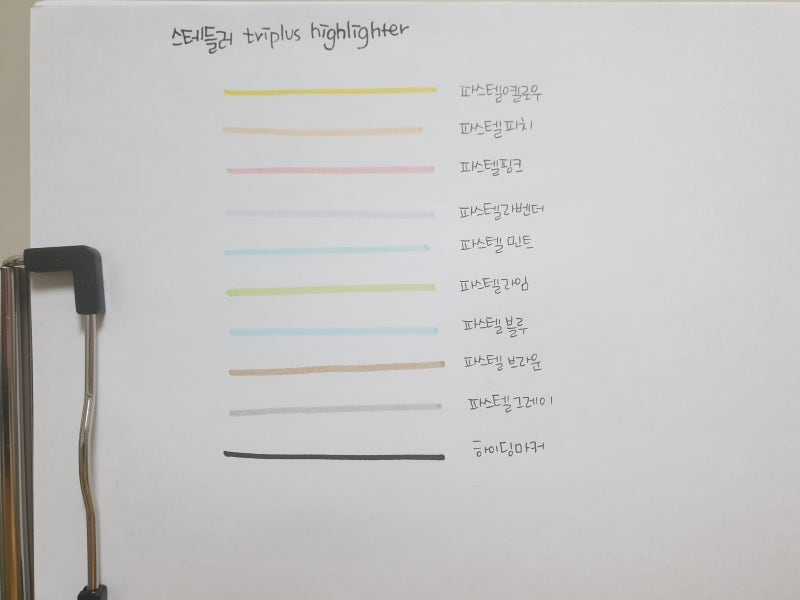 스테들러 triplus highlighter
파스텔옐로우
파스텔피치
파스텔핑크
파스텔라벤더
파스텔민트
파스텔라임
파스텔블루
파스텔브라운
파스텔그레이
하이딩마커